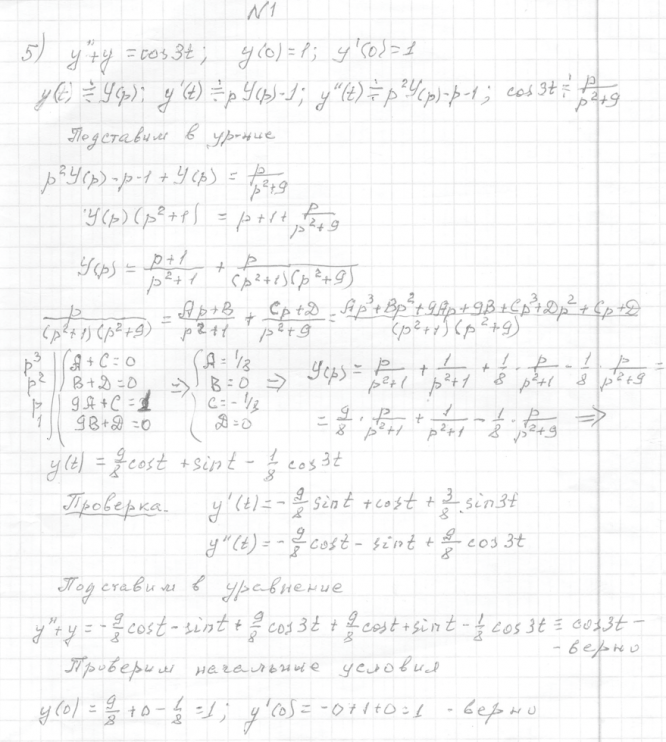 N1
5) y''+y = cos3t; y(0)=1; y'(0)=1
y(t) ≑ Y(p); y'(t) ≑ pY(p)-1; y''(t) ≑ p²Y(p)-p-1; cos3t ≑ p/(p²+9)
Подставим в ур-ние
p²Y(p)-p-1+Y(p) = p/(p²+9)
Y(p)(p²+1) = p+1+ p/(p²+9)
Y(p) = (p+1)/(p²+1) + p/((p²+1)(p²+9))
p/((p²+1)(p²+9)) = (Ap+B)/(p²+1) + (Cp+D)/(p²+9) = (Ap³+Bp²+9Ap+9B+Cp³+Dp²+Cp+D)/((p²+1)(p²+9))
p³ | A+C=0 A=1/8
p² | B+D=0 B=0
p | 9A+C=1 C=-1/8
1 | 9B+D=0 D=0
⇒ ⇒ Y(p) = p/(p²+1) + 1/(p²+1) + 1/8 · p/(p²+1) - 1/8 · p/(p²+9) =
= 9/8 · p/(p²+1) + 1/(p²+1) - 1/8 · p/(p²+9) ⇒
y(t) = 9/8 cost + sint - 1/8 cos3t
Проверка. y'(t) = -9/8 sint + cost + 3/8 sin3t
y''(t) = -9/8 cost - sint + 9/8 cos3t
Подставим в уравнение
y''+y = -9/8 cost - sint + 9/8 cos3t + 9/8 cost + sint - 1/8 cos3t ≡ cos3t -
- верно
Проверим начальные условия
y(0) = 9/8 + 0 - 1/8 = 1; y'(0) = -0+1+0=1 - верно